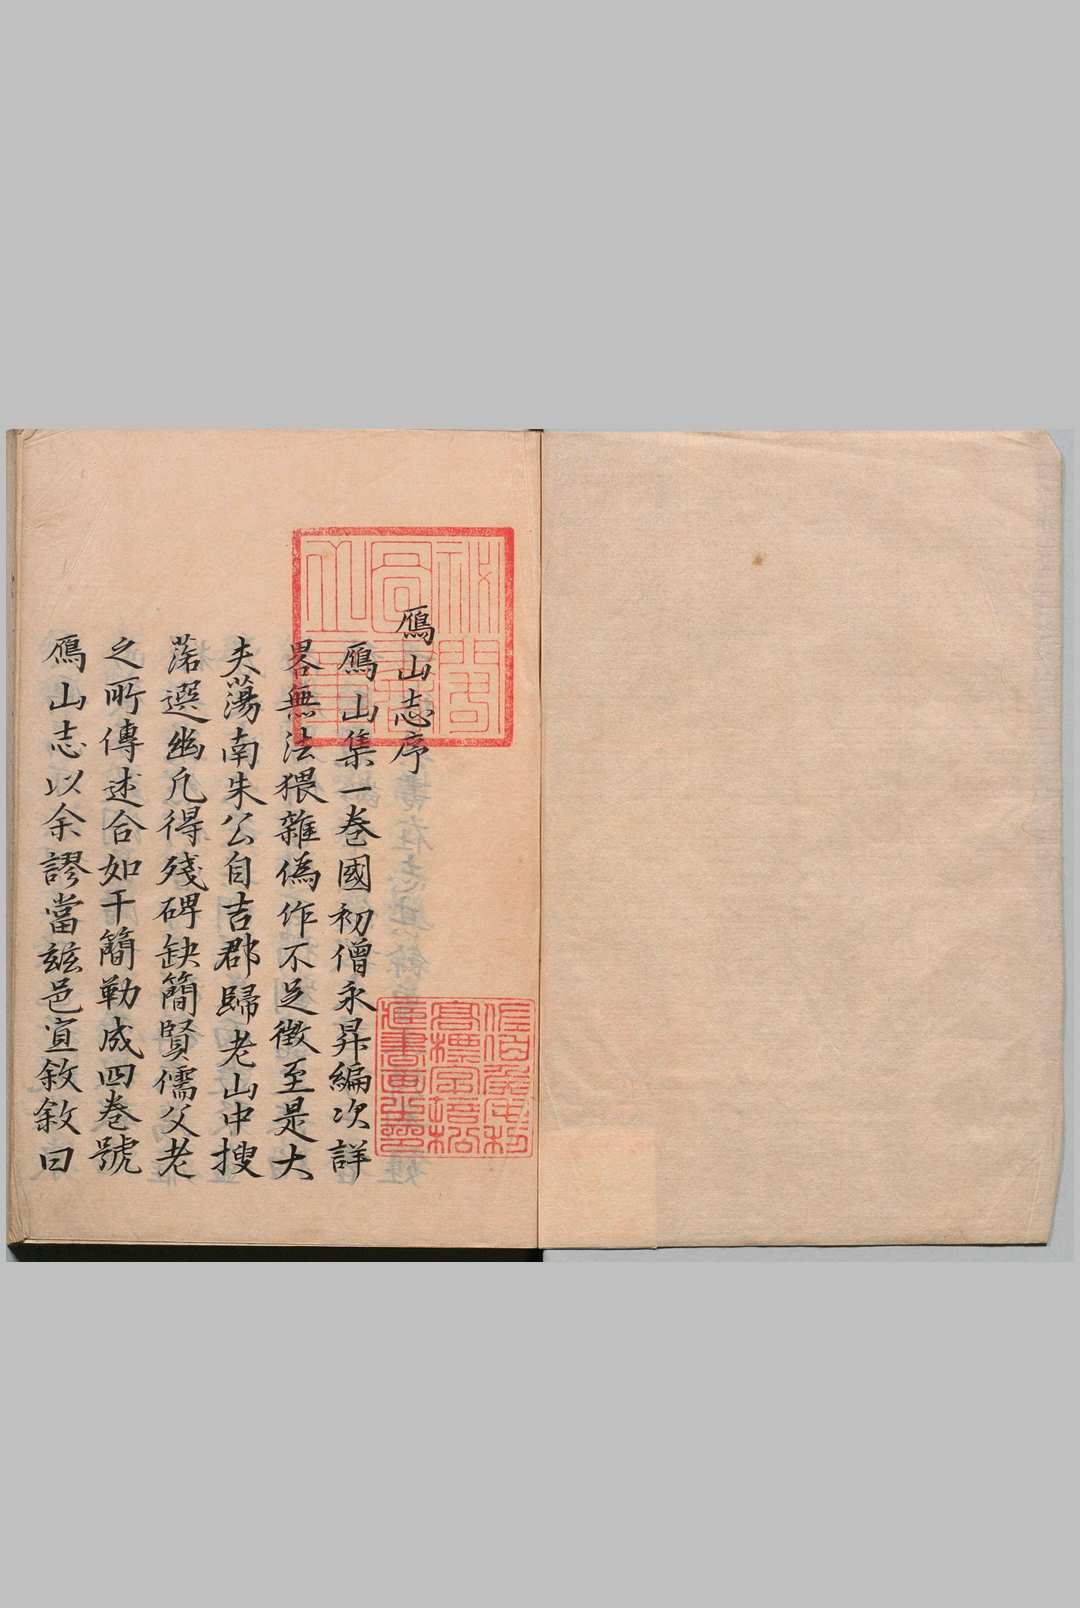 鴈山志序
鴈山集一卷國初僧永昇編次詳
畧無法猥雜僞作不足徵至是大
夫蕩南朱公自吉郡歸老山中搜
萿選幽凡得殘碑缺簡賢儒父老
之所傳述合如干簡勒成四卷號
鴈山志以余謬當茲邑宣敘敘曰